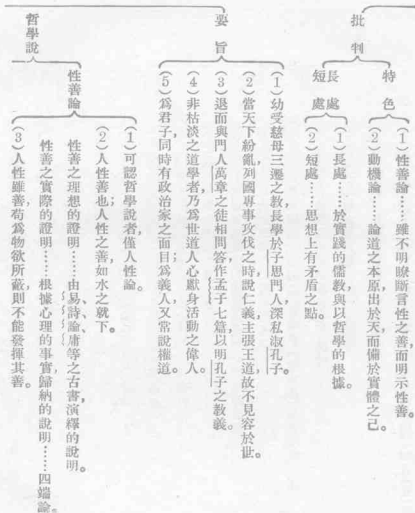 批判
特色
（１）性善論……雖不明瞭斷言性之善而明示性善。
（２）動機論……論道之本原出於天而備於實體之己。
長處短處
（１）長處……於實踐的儒教與以哲學的根據。
（２）短處……思想上有矛盾之點。
要旨
（１）幼受慈母三遷之教，長學於子思門人，深私淑孔子。
（２）當天下紛亂，列國專事攻伐之時，說仁義，主張王道，故不見容於世。
（３）退而與門人萬章之徒相問答，作孟子七篇，以明孔子之教義。
（４）非枯淡之道學者，乃爲世道人心獻身活動之偉人。
（５）爲君子同時有政治家之面目；爲義人又常說權道。
哲學說
（１）可認哲學說者僅人性論。
性善論
（２）人性善也；人性之善，如水之就下。
性善之理想的證明……由易、詩、論、庸等之古書，演繹的說明。
性善之實際的證明……根據心理的事實，歸納的說明……四端論。
（３）人性雖善，苟爲物欲所蔽，則不能發揮其善。